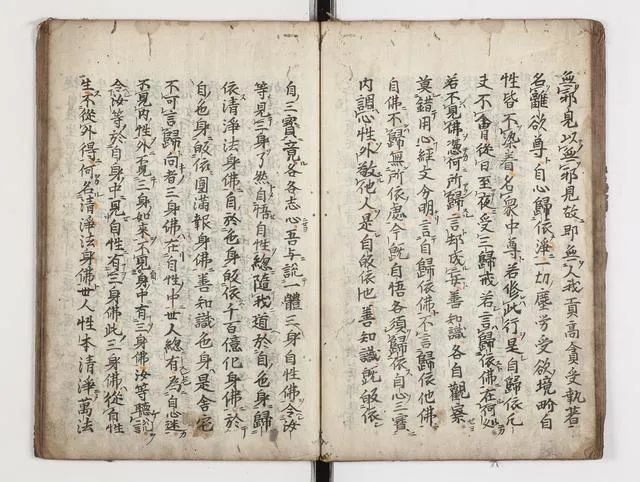 無邪見以無邪見故即無人我貢高貪愛執著
名離欲尊自心歸依淨一切塵労愛欲境界自
性皆不染着名衆中尊若修此行是自歸依凡
夫不會從日至夜受三歸戒若言歸依佛在何処
若不見佛憑何所歸言却成妄善知識各自觀察
莫錯用心經文分明言自歸依佛不言歸依他佛
自佛不歸無所依處今既自悟各須歸依自心三寶
内調心性外敬他人是自皈依也善知識既皈依
自三寶竟各各志心吾与說一體三身自性佛令汝
等見三身了然自悟自性總隨我道於自色身歸
依清淨法身佛自於色身皈依千百億化身佛於
自色身皈依圓滿報身佛善知識色身是舍宅
不可言歸向者三身佛在自性中世人總有為自心迷
不見内性外覓三身如來不見身中有三身佛汝等聽說
令汝等於自身中見自性有三身佛此三身佛從自性
生不從外得何名清淨法身佛世人性本清淨萬法